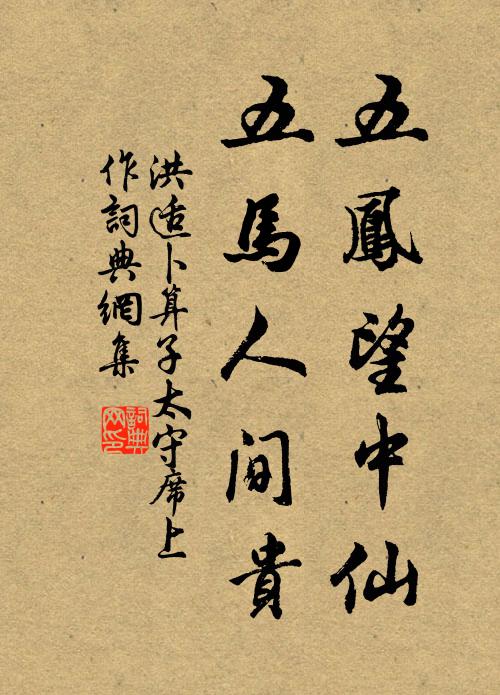 五鳳望中仙
五馬人間貴
洪适卜算子太守席上
作詞典網集
詞典
网印